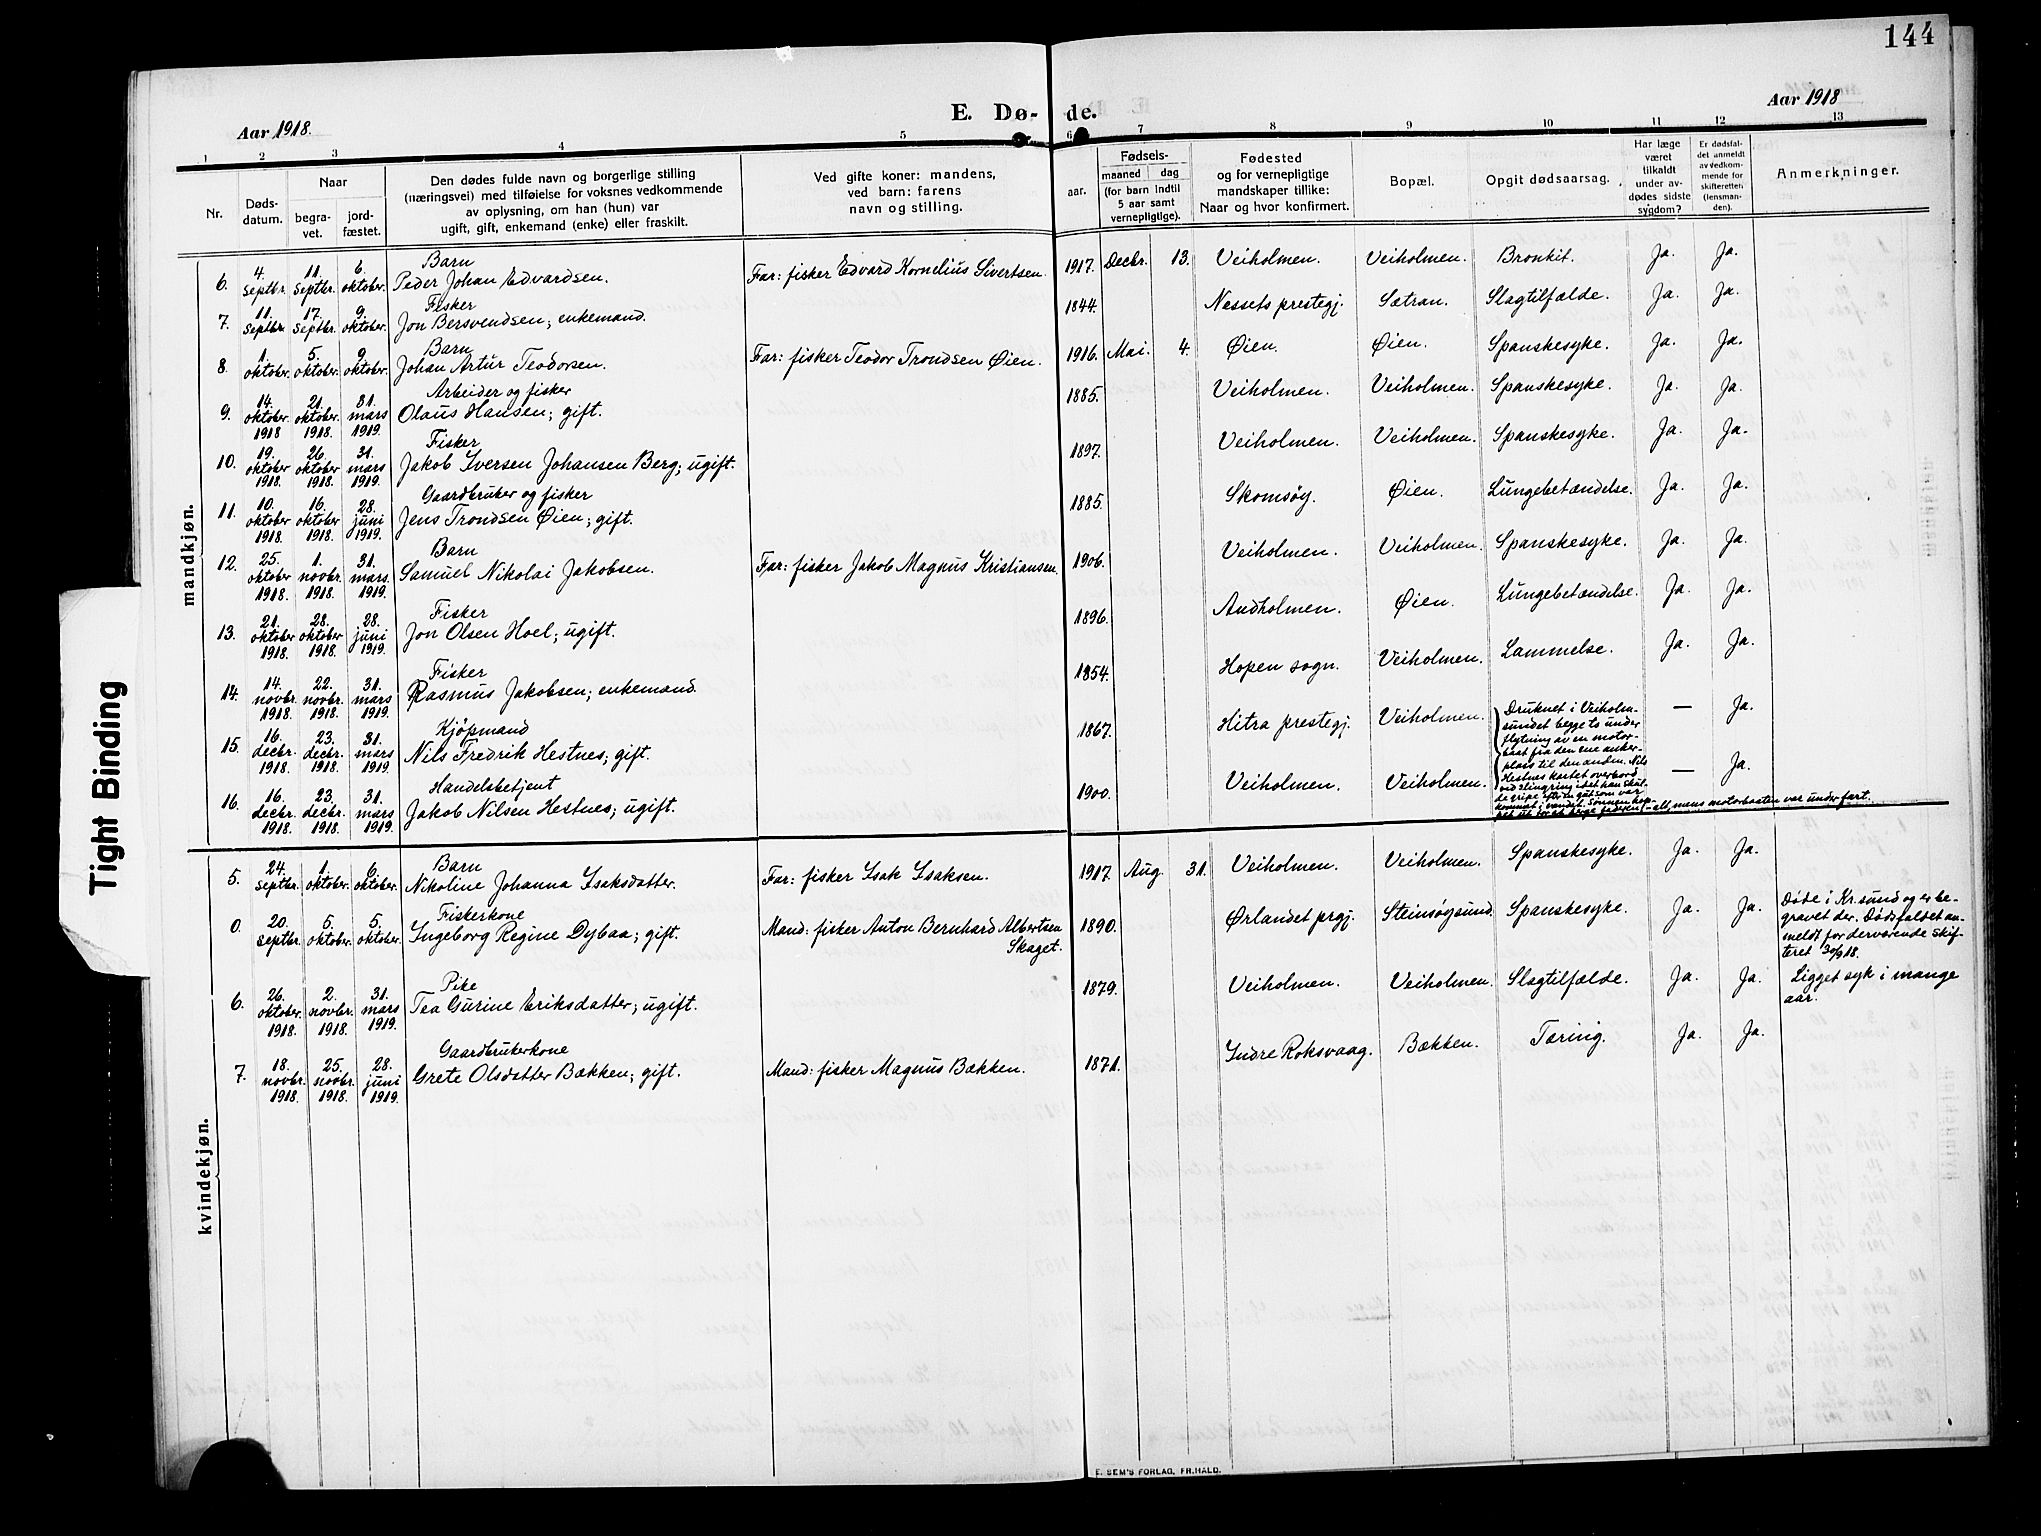 144
Aar 1918.
E. Dø- de.
Aar 1918
1 2 3 4 5 6 7 8 9 10 11 12 13
Nr.
Døds-
datum.
Naar
begra-
vet.
jord-
fæstet.
Den dødes fulde navn og borgerlige stilling
(næringsvei) med tilføielse for voksnes vedkommende
av oplysning, om han (hun) var
ugift, gift, enkemand (enke) eller fraskilt.
Ved gifte koner: mandens,
ved barn: farens
navn og stilling.
Fødsels-
aar.
maaned dag
(for barn indtil
5 aar samt
vernepligtige).
Fødested
og for vernepligtige
mandskaper tillike:
Naar og hvor konfirmert.
Bopæl.
Opgit dødsaarsag.
Har læge
været
tilkaldt
under av-
dødes sidste
sygdom?
Er dødsfal-
det anmeldt
av vedkom-
mende for
skifteretten
(lensman-
den).
Anmerkninger.
mandkjøn.
6. 4. septbr. 11. septbr. 6. oktober. Barn Peder Johan Edvardsen. Far: fisker Edvard Kornelius Sivertsen. 1917. Decbr. 13. Veiholmen. Veiholmen. Bronkit. Ja. Ja.
7. 11. septbr. 17. septbr. 9. oktober. Fisker Jon Bersvendsen; enkemand. 1844. Nessets prestegj. Sætran. Slagtilfælde. Ja. Ja.
8. 1. oktober. 5. oktober. 9. oktober. Barn Johan Artur Teodorsen. Far: fisker Teodor Trondsen Øien. 1916. Mai. 4. Øien. Øien. Spanskesyke. Ja. Ja.
9. 14. oktober 1918 21. oktober. 1918. 31. mars 1919. Arbeider og fisker Olaus Hansen; gift. 1885. Veiholmen. Veiholmen. Spanskesyke. Ja. Ja.
10. 19. oktober 1918. 26. oktober 1918. 31. mars 1919. Fisker Jakob Iversen Johansen Berg; ugift. 1897. Veiholmen. Veiholmen. Spanskesyke. Ja. Ja.
11. 10. oktober 1918. 16. oktober 1918. 28. juni 1919. Gaardbruker og fisker Jens Trondsen Øien; gift. 1885. Skomsøy. Øien. Lungebetændelse. Ja. Ja.
12. 25. oktober 1918. 1. novbr. 1918. 31. mars. 1919. Barn Samuel Nikolai Jakobsen. Far: fisker Jakob Magnus Kristiansen. 1906. Veiholmen. Veiholmen. Spanskesyke. Ja. Ja.
13. 21. oktober 1918. 28. oktober 1918. 28. juni 1919. Fisker Jon Olsen Hoel; ugift. 1896. Andholmen. Øien. Lungebetændelse. Ja. Ja.
14. 14. novbr. 1918. 22. novbr. 1918. 31. mars 1919. Fisker Rasmus Jakobsen; enkemand. 1854. Hopen sogn. Veiholmen. Lammelse. Ja. Ja.
15. 16. decbr. 1918. 23. decbr. 1918. 31. mars 1919. Kjøpmand Nils Fredrik Hestnes; gift. 1867. Hitra prestegj. Veiholmen. — Ja.
16. 16. decbr. 1918. 23. decbr. 1918. 31. mars 1919. Handelsbetjent Jakob Nilsen Hestnes; ugift. 1900. Veiholmen. Veiholmen. — Ja.
Druknet i Veiholm-
sundet begge to under
flytning av en motor-
baat fra den ene anker-
plass til den anden. Nils
Hestnes kastet overbord
ved slingring idet han skul-
de gripe efter en gut som var
kommet i vandet. Sønnen hop-
pet ut for at berge faderen — alt, mens motorbaaten var under fart.
kvindekjøn.
5. 24. septbr. 1. oktober. 6. oktober. Barn Nikoline Johanna Isaksdatter. Far: fisker Isak Isaksen. 1917. Aug. 31. Veiholmen. Veiholmen. Spanskesyke. Ja. Ja.
0. 20. septbr. 5. oktober. 5. oktober. Fiskerkone Ingeborg Regine Dybaa; gift. Mand: fisker Anton Bernhard Albertsen Skaget. 1890. Ørlandet prgj. Steinsøysund. Spanskesyke. Ja. Ja.
Døde i Kr.sund og er be-
gravet der. Dødsfaldet an-
meldt for derværende skif-
teret 30/9 18.
6. 26. oktober. 1918. 2. novbr. 1918. 31. mars 1919. Pike Tea Gurine Eriksdatter; ugift. 1879. Veiholmen. Veiholmen. Slagtilfælde. Ja. Ja. Ligget syk i mange
aar.
7. 18. novbr. 1918. 25. novbr. 1918. 28. juni 1919. Gaardbrukerkone Grete Olsdatter Bækken; gift. Mand: fisker Magnus Bækken. 1871. Indre Roksvaag. Bækken. Tæring. Ja. Ja.
Tight Binding
E. SEM'S FORLAG, FR.HALD.